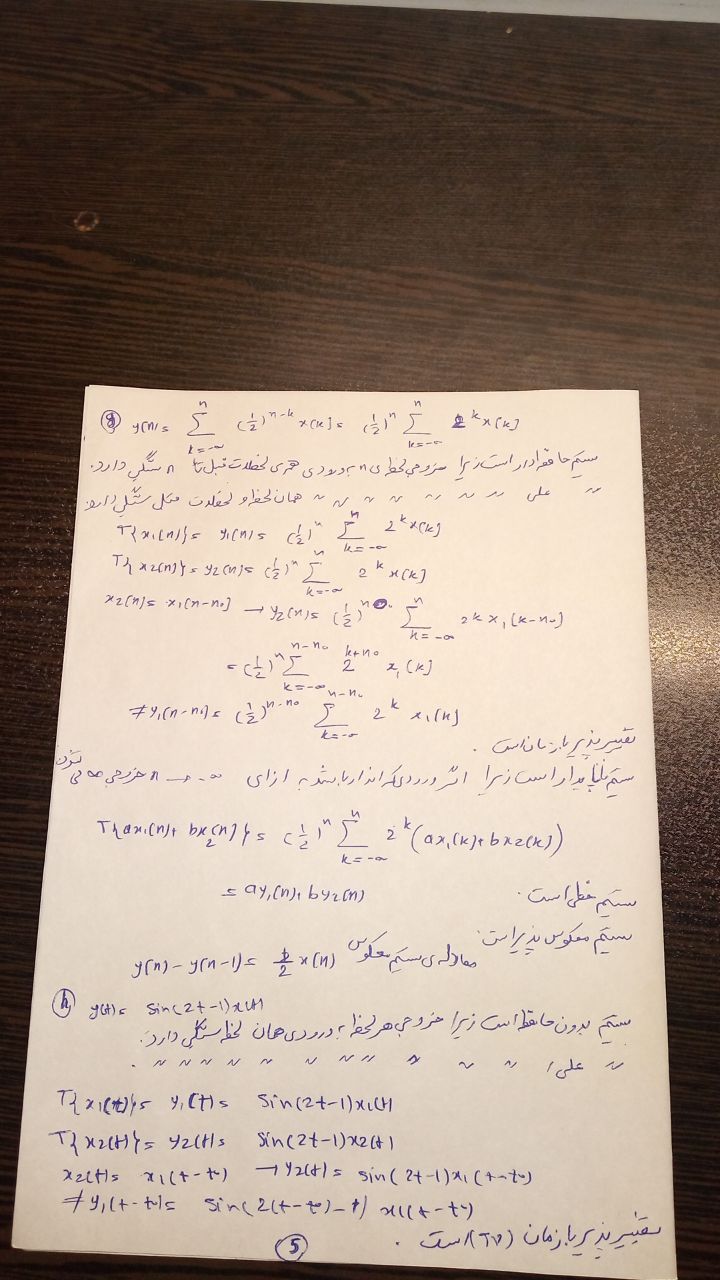 g y[n]= Σ_{k=-∞}^{n} (1/2)^{n-k} x[k]= (1/2)^n Σ_{k=-∞}^{n} 2^k x[k]
سیستم حافظه‌دار است زیرا خروجی لحظه‌ی n به ورودی همه‌ی لحظات قبل تا n بستگی دارد.
〃 علی 〃 〃 〃 〃 〃 〃 〃 همان لحظه و لحظات قبل بستگی دارد
T{x1[n]}= y1[n]= (1/2)^n Σ_{k=-∞}^{n} 2^k x[k]
T{x2[n]}= y2[n]= (1/2)^n Σ_{k=-∞}^{n} 2^k x[k]
x2[n]= x1[n-n0] → y2[n]= (1/2)^n Σ_{k=-∞}^{n} 2^k x1[k-n0]
= (1/2)^n Σ_{k=-∞}^{n-n0} 2^{k+n0} x1[k]
≠ y1[n-n0]= (1/2)^{n-n0} Σ_{k=-∞}^{n-n0} 2^k x1[k]
تغییرپذیر با زمان است.
سیستم ناپایدار است زیرا اگر ورودی کراندار باشد به ازای n → -∞ خروجی می‌شود
T{ax1[n]+ bx2[n]}= (1/2)^n Σ_{k=-∞}^{n} 2^k (ax1[k]+bx2[k])
= ay1[n]+by2[n]
سیستم خطی است.
سیستم معکوس پذیر است
معادله‌ی سیستم معکوس y[n]-y[n-1]= 1/2 x[n]
h y(t)= sin(2t-1)x(t)
سیستم بدون حافظه است زیرا خروجی هر لحظه به ورودی همان لحظه بستگی دارد.
〃 علی 〃 〃 〃 〃 〃 〃 〃 〃 〃 〃 .
T{x1(t)}= y1(t)= sin(2t-1)x1(t)
T{x2(t)}= y2(t)= sin(2t-1)x2(t)
x2(t)= x1(t-t0) → y2(t)= sin(2t-1)x1(t-t0)
≠ y1(t-t0)= sin(2(t-t0)-1) x1(t-t0)
تغییرپذیر با زمان (TV) است.
5